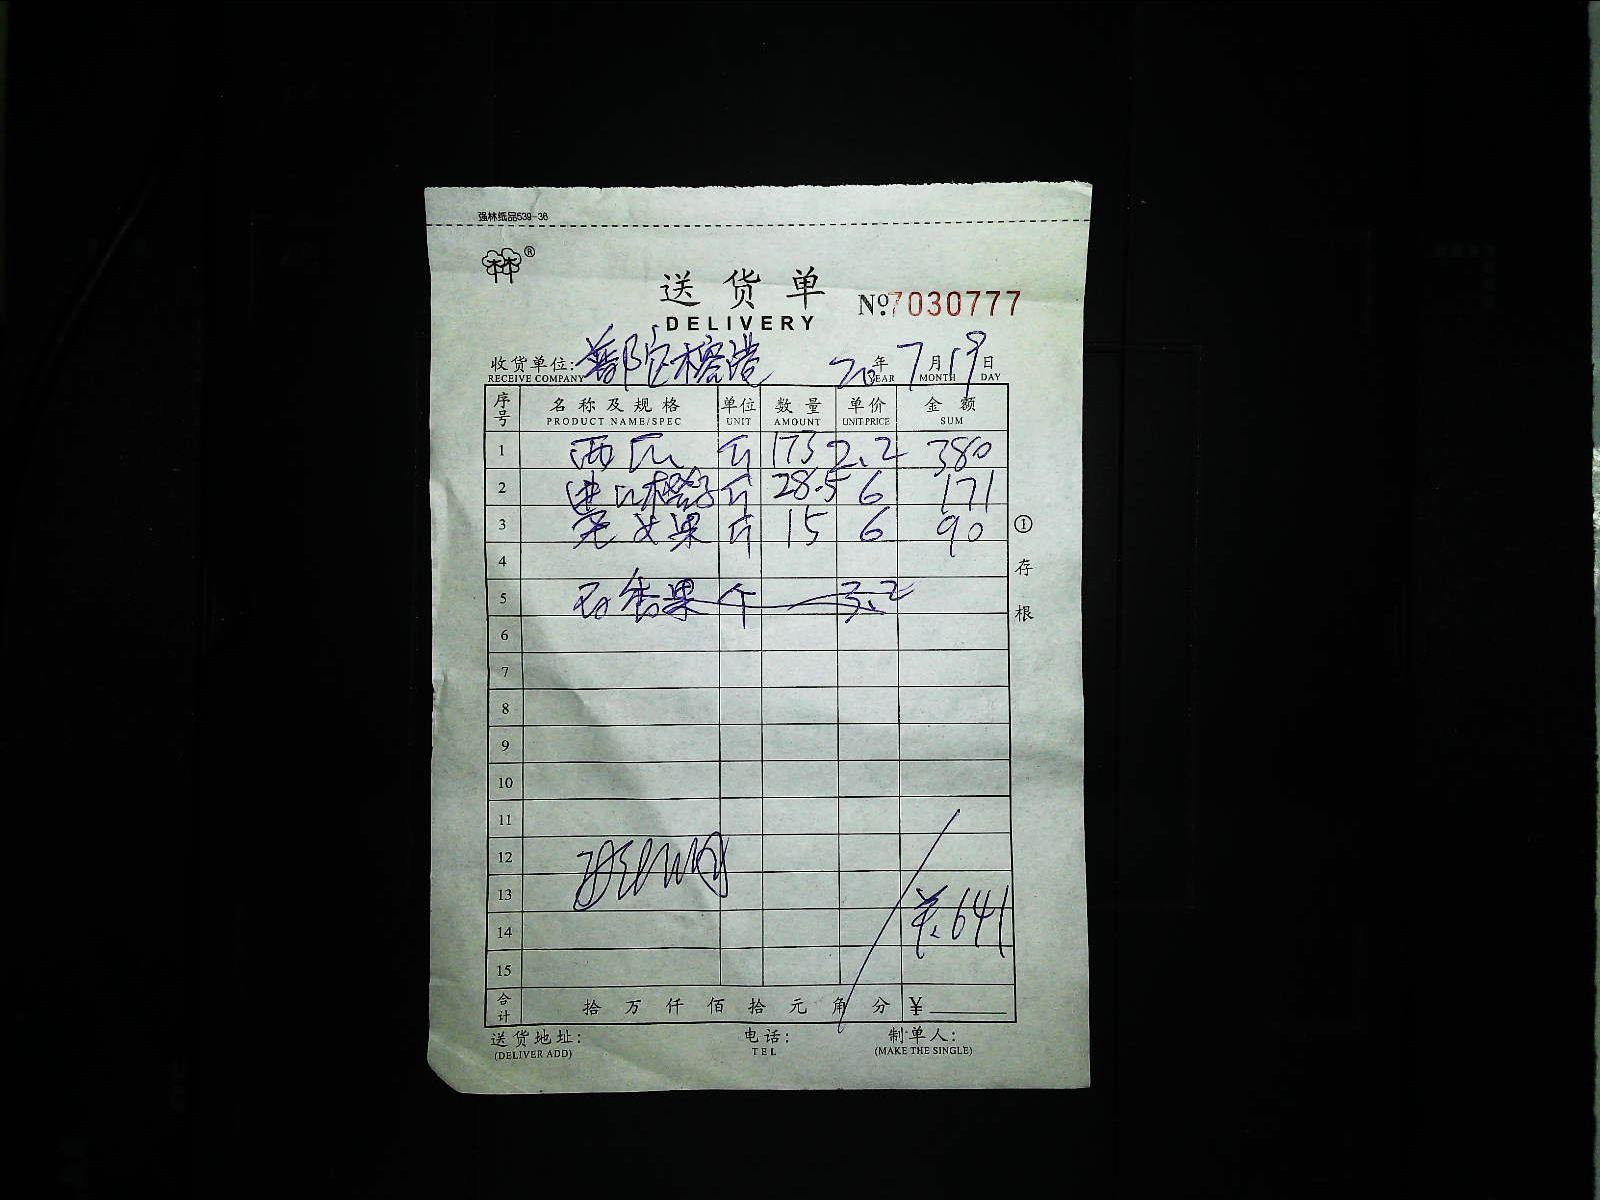 强林纸品539-36
®
送货单
DELIVERY
№7030777
收货单位:普陀榕港 20年7月19日
RECEIVE COMPANY YEAR MONTH DAY
序号 名称及规格 单位 数量 单价 金额
PRODUCT NAME/SPEC UNIT AMOUNT UNIT PRICE SUM
1 西瓜 斤 173 2.2 380
2 进口橙子 斤 28.5 6 171
3 圣女果 斤 15 6 90
4
5 百香果 个 3.2
6
7
8
9
10
11
12
13
14 641
15
合计 拾 万 仟 佰 拾 元 角 分 ¥
送货地址: 电话: 制单人:
(DELIVER ADD) TEL (MAKE THE SINGLE)
① 存根